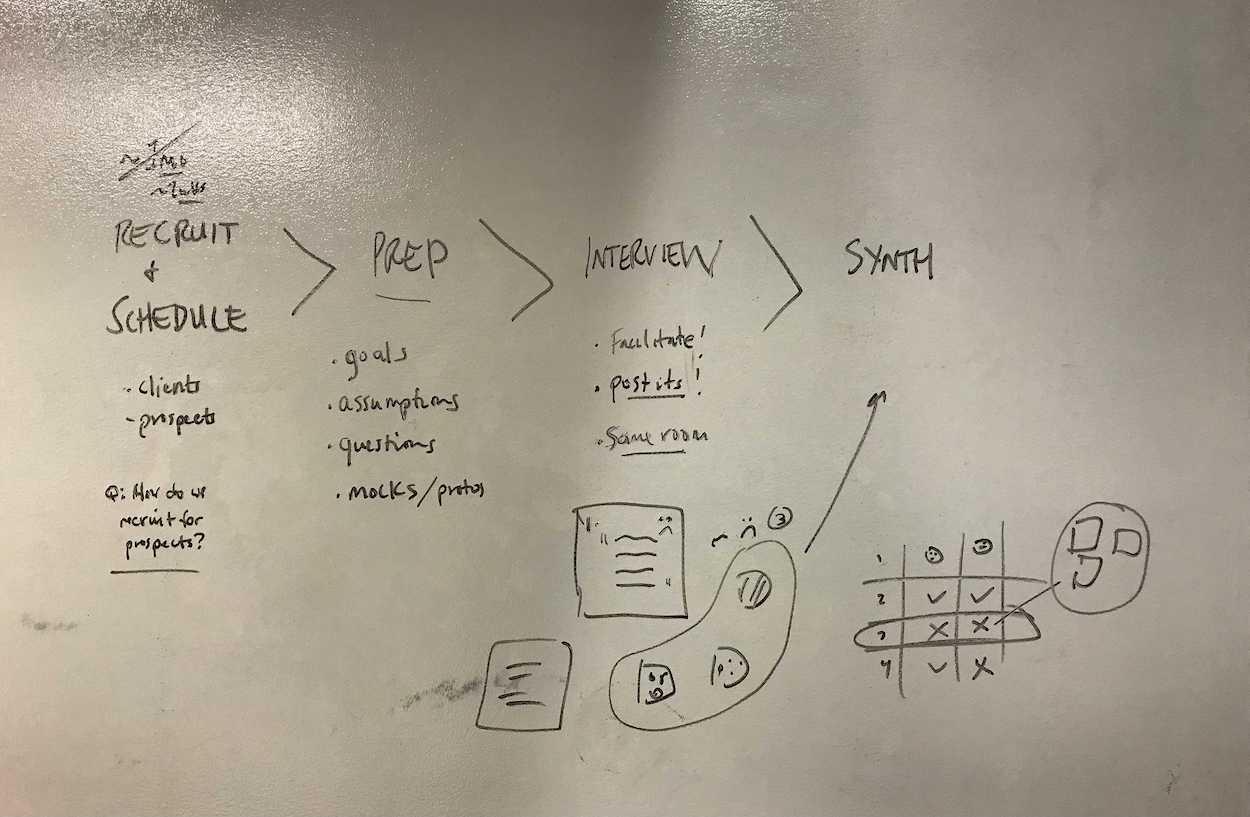 ~1 MO
~2 wks
RECRUIT
&
SCHEDULE
- clients
- prospects
Q: How do we
recruit for
prospects?
PREP
· goals
· assumptions
· questions
· mocks/protos
INTERVIEW
· Facilitate!
· post its!
· Same room
SYNTH
3
1
2
3
4